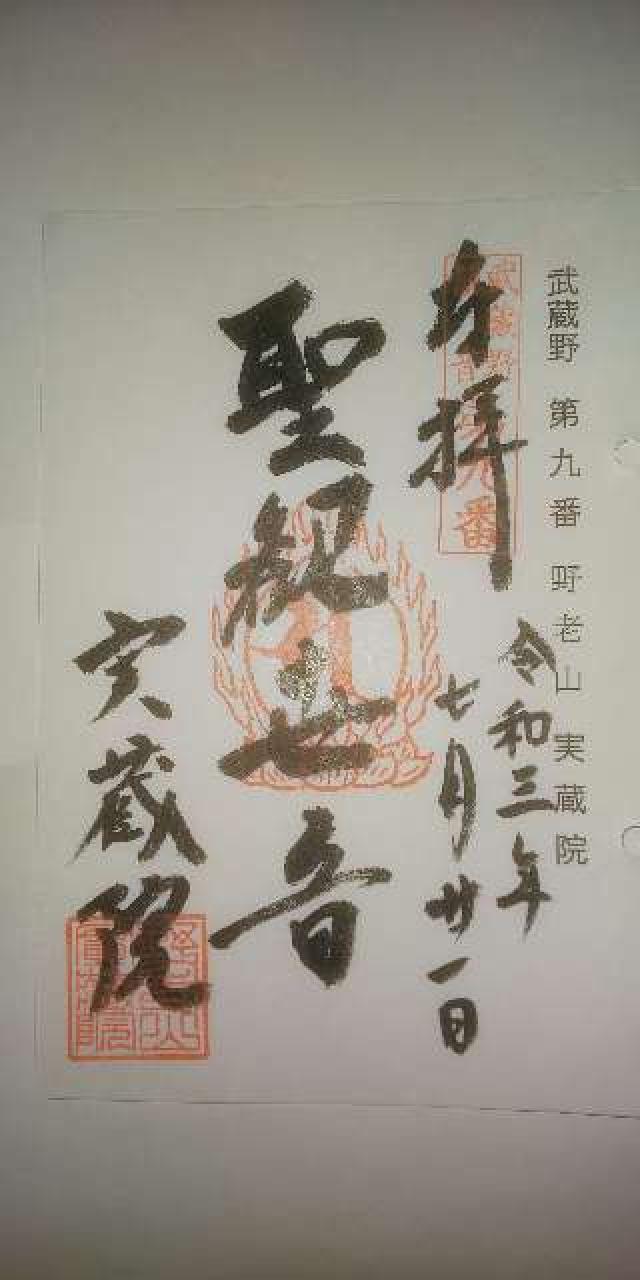 武蔵野 第九番 野老山 実蔵院
奉拝
武蔵野
第九番
令和三年
七月廿一日
聖観世音
実蔵院